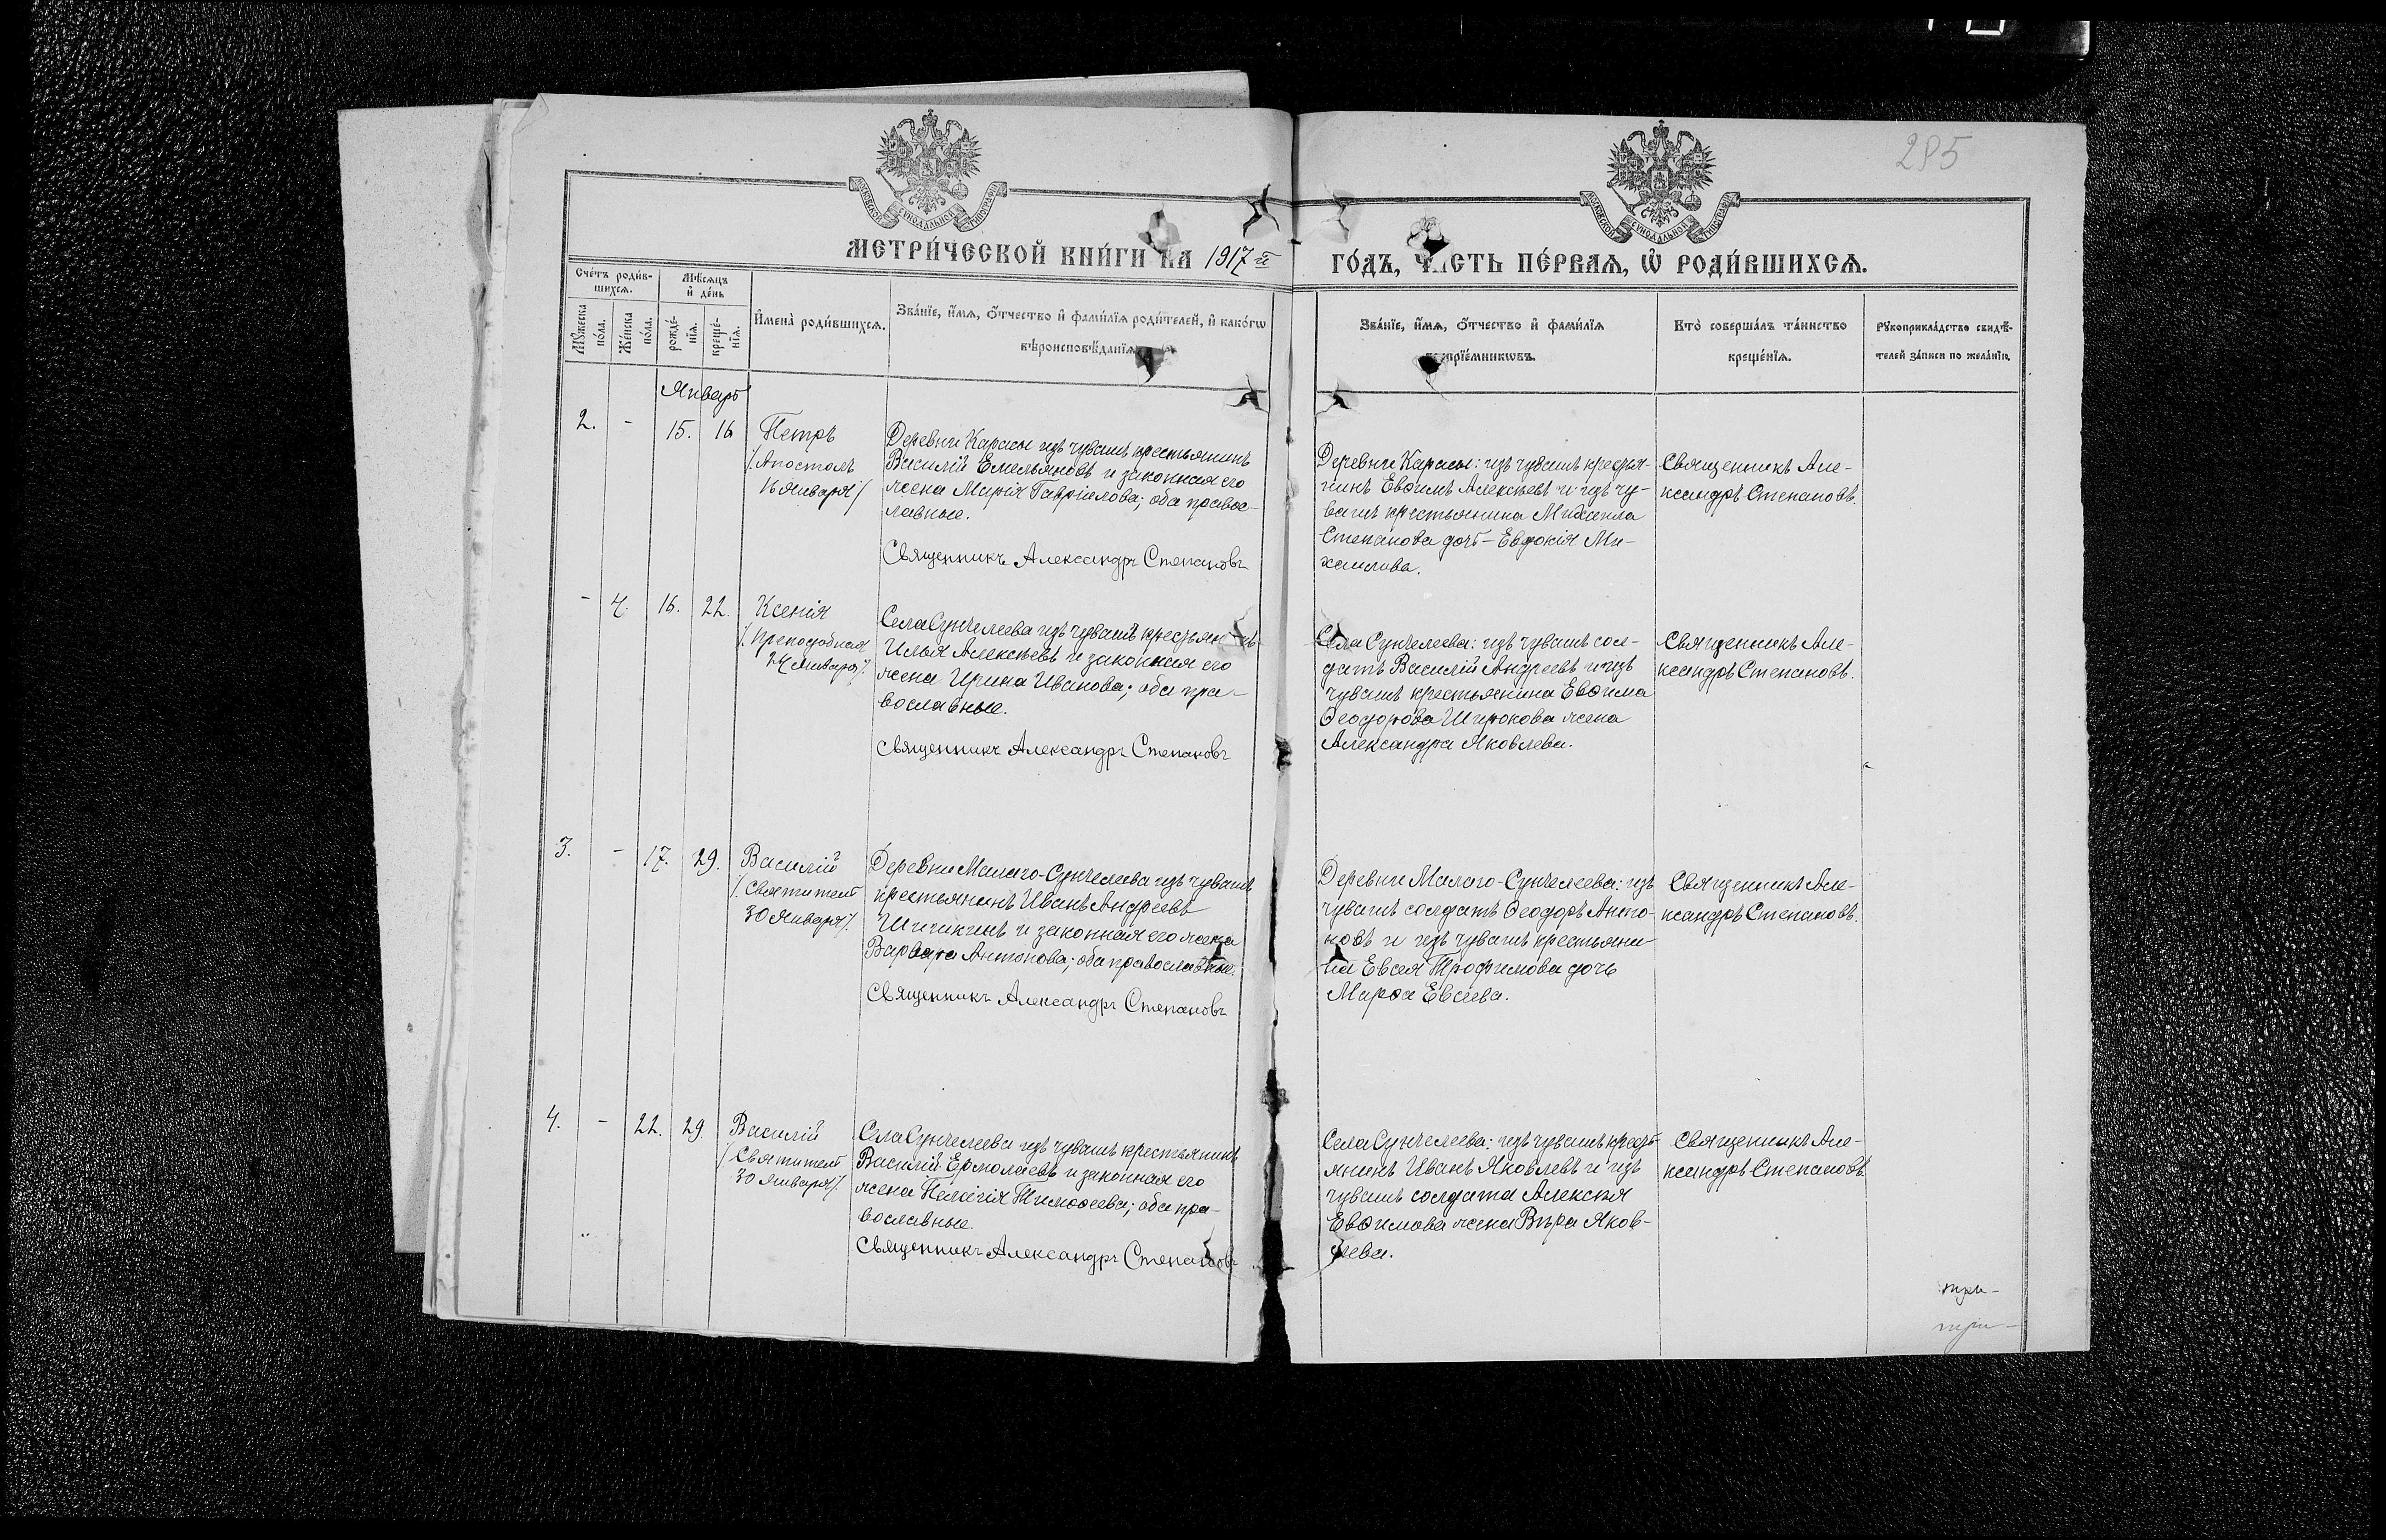 285
МЕТРИ́ЧЕСКОЙ КНИ́ГИ НА 1917 й ГО́ДЪ, ЧАСТЬ ПЕ́РВАЯ, Ѡ РОДИ́ВШИХСЯ.
Счётъ роди́в-
шихся.
Мѣ́сяцъ
и де́нь
Мꙋ́жеска
по́ла.
Же́нска
по́ла.
рожде́-
нїя.
креще́-
нїя.
Имена̀ роди́вшихся.
Зва́нїе, и́мя, о́тчество и фами́лїя роди́телей, и како́гѡ
вѣроисповѣ́данїя.
Зва́нїе, и́мя, о́тчество и фами́лїя
воспрїе́мникѡвъ.
Кто̀ соверша́лъ та́инство
креще́нїя.
Рꙋкоприкла́дство свидѣ́-
телей за́писи по жела́нїю.
Январь
2. - 15. 16
Петръ
/Апостолъ
16 января/
Деревни Карасы изъ чувашъ крестьянинъ
Василій Емельяновъ и законная его
жена Марія Гавріилова; оба правос-
лавные.
Священникъ Александръ Степановъ
Деревни Карасы: изъ чувашъ крестья-
нинъ Евѳимъ Алексѣевъ и изъ чу-
вашъ крестьянина Михаила
Степанова дочь - Евдокія Ми-
хаилова.
Священникъ Але-
ксандръ Степановъ.
- 4. 16. 22.
Ксенія
/Преподобная
24 января/.
Села Сунчелеева изъ чувашъ крестьянинъ
Илья Алексѣевъ и законная его
жена Ирина Иванова; оба пра-
вославные.
Священникъ Александръ Степановъ
Села Сунчелеева: изъ чувашъ сол-
датъ Василій Андреевъ и изъ
чувашъ крестьянина Евѳима
Ѳеодорова Широкова жена
Александра Яковлева.
Священникъ Але-
ксандръ Степановъ.
3. - 17. 29.
Василій
/Святитель
30 января/.
Деревни Малаго-Сунчелеева изъ чувашъ
крестьянинъ Иванъ Андреевъ
Шишкинъ и законная его жена
Варвара Антонова; оба православные.
Священникъ Александръ Степановъ
Деревни Малаго-Сунчелеева: изъ
чувашъ солдатъ Ѳеодоръ Анто-
новъ и изъ чувашъ крестьяни-
на Евсея Трофимова дочь
Марѳа Евсеева.
Священникъ Але-
ксандръ Степановъ.
4. - 22. 29.
Василій
/Святитель
30 января/.
Села Сунчелеева изъ чувашъ крестьянинъ
Василій Ермолаевъ и законная его
жена Пелагія Тимоѳеева; оба пра-
вославные.
Священникъ Александръ Степановъ
Села Сунчелеева: изъ чувашъ кресть-
янинъ Иванъ Яковлевъ и изъ
чувашъ солдата Алексѣя
Евѳимова жена Вѣра Яков-
лева.
Священникъ Але-
ксандръ Степановъ.
при-
при-